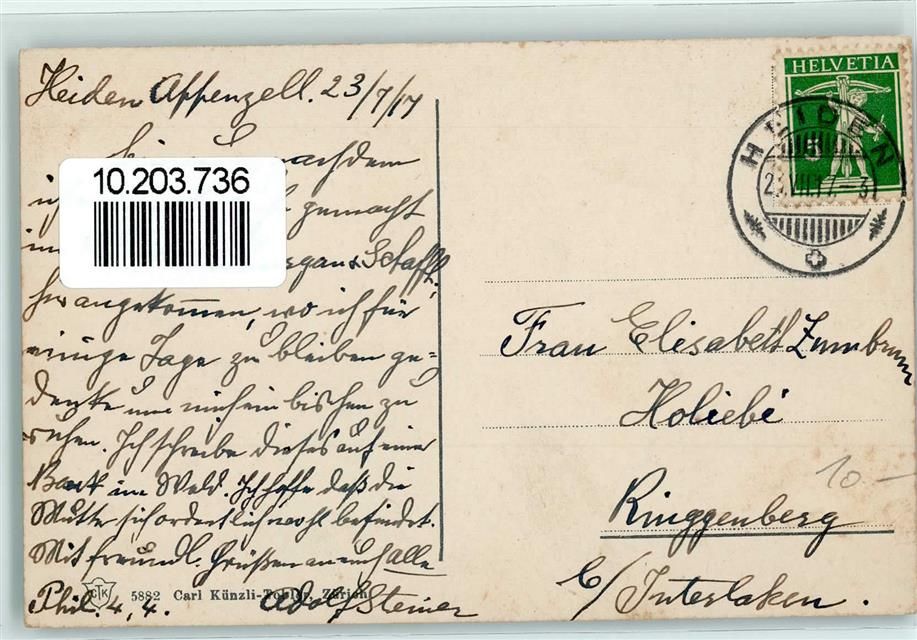 Heiden Appenzell. 23/7/17
Bin nachdem
ich gemacht
im & Schaffh.
hier angekommen, wo ich für
einige Tage zu bleiben ge=
denke um mich ein bischen zu
ruhen. Ich schreibe dieses auf einer
Bank im Wald. Ich hoffe daß die
Mutter sich ordentlich wohl befindet.
Mit freundl. Grüßen an euch alle
Adolf Steiner
Phil. 4, 4.
10.203.736
CTK
5882 Carl Künzli-Tobler, Zürich
HELVETIA
5
HEIDEN
23.VII.17.-3
Frau Elisabeth Zumbrunn
Holiebi
Ringgenberg
b/Interlaken.
10.-